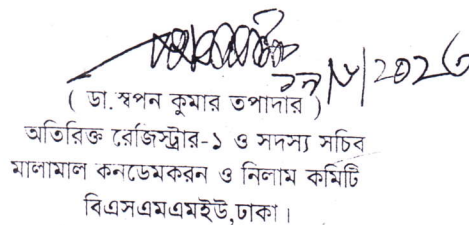 ( ডা.স্বপন কুমার তপাদার )
অতিরিক্ত রেজিস্ট্রার-১ ও সদস্য সচিব
মালামাল কনডেমকরন ও নিলাম কমিটি
বিএসএমএমইউ,ঢাকা।